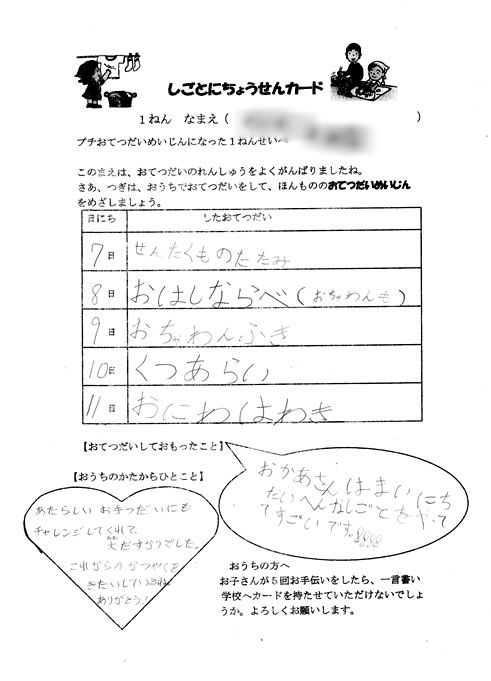 しごとにちょうせんカード
1ねん なまえ( )
プチおてつだいめいじんになった1ねんせいへ
このまえは、おてつだいのれんしゅうをよくがんばりましたね。
さあ、つぎは、おうちでおてつだいをして、ほんもののおてつだいめいじん
をめざしましょう。
日にち したおてつだい
7日 せんたくものたたみ
8日 おはしならべ(おちゃわんも)
9日 おちゃわんふき
10日 くつあらい
11日 おにわはわき
【おてつだいしておもったこと】
おかあさんはまいにち
たいへんなしごとをやって
てすごいです。
【おうちのかたからひとこと】
あたらしいお手つだいにも
チャレンジしてくれて、
大だすかりでした。
これからのかつやくを
きたいしているね
ありがとう!
おうちの方へ
お子さんが5回お手伝いをしたら、一言書い
学校へカードを持たせていただけないでしょ
うか。よろしくお願いします。